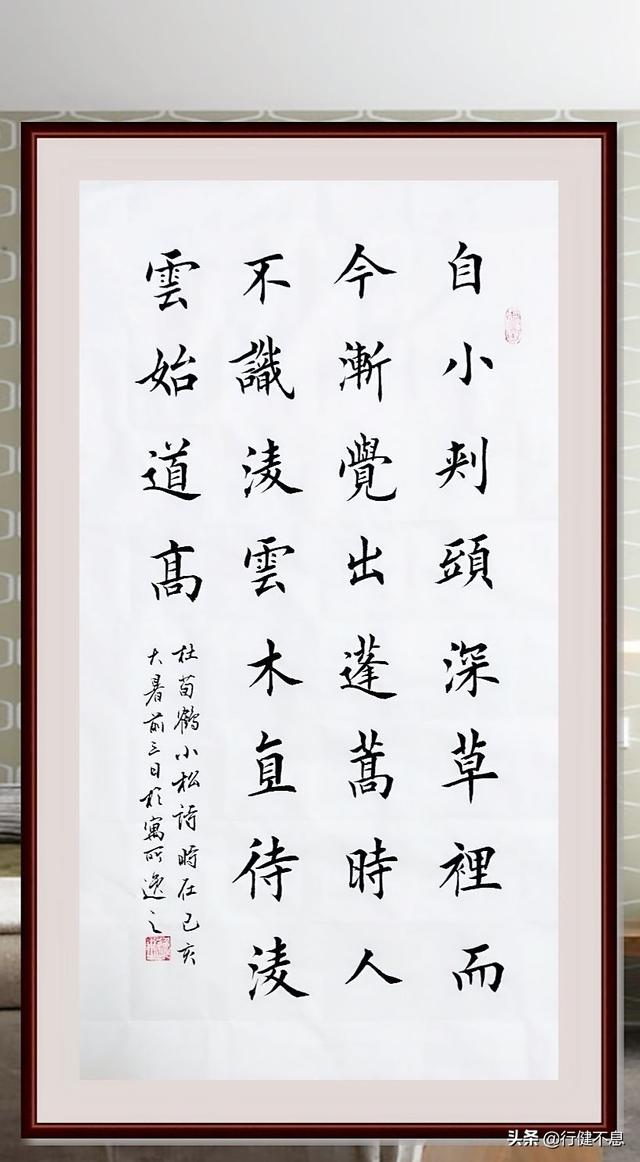 自小刾頭深草裡而
今漸覺出蓬蒿時人
不識淩雲木直待淩
雲始道高
杜荀鶴小松詩時在己亥
大暑前三日於寓所逸之
头条 @行健不息